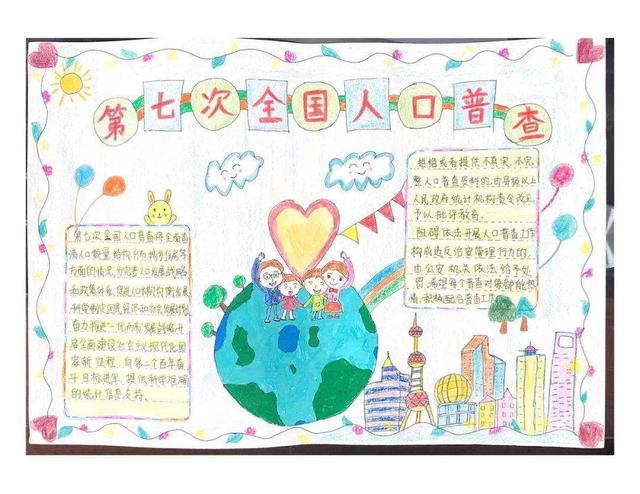 第七次全国人口普查
第七次全国人口普查将全面查
清人口数量、结构、分布、城乡住房等
方面的情况,为完善人口发展战略
和政策体系,促进人口长期均衡发展
开启全面建设社会主义现代化国
家新征程,向第二个百年奋
斗目标进军,提供科学准确
的统计信息支持。
拒绝或者提供不真实、不完
整人口普查资料的,由县级以上
人民政府统计机构责令改正,
予以批评教育。
阻碍依法开展人口普查工作,
构成违反治安管理行为的,
由公安机关依法给予处
罚,希望每个普查对象都能热
情、积极配合普查工作。